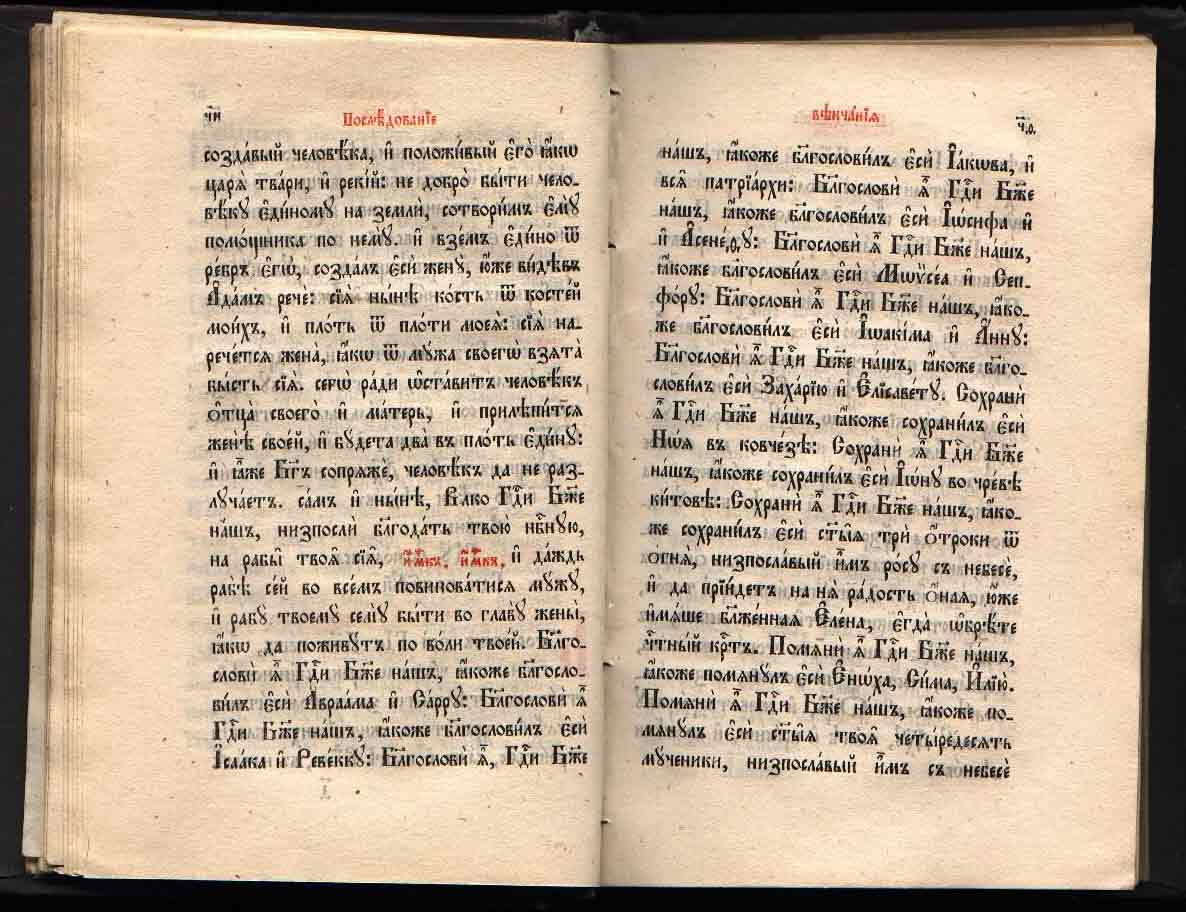 ч҃и
Послѣ́дованїе
созда́вый человѣ́ка, и҆ положи́вый є҆го̀ ꙗ҆́кѡ
царѧ̀ тва́ри, и҆ реки́й: не добро̀ бы́ти чело-
вѣ́кꙋ є҆ди́номꙋ на землѝ, сотвори́мъ є҆мꙋ̀
помо́щника по немꙋ̀. и҆ взе́мъ є҆ди́но ѿ
ре́бръ є҆гѡ̀, созда́лъ є҆сѝ женꙋ̀, ю҆́же ви́дѣвъ
А҆да́мъ речѐ: сїѧ̀ ны́нѣ ко́сть ѿ косте́й
мои́хъ, и҆ пло́ть ѿ пло́ти моеѧ̀: сїѧ̀ на-
рече́тсѧ жена̀, ꙗ҆́кѡ ѿ мꙋ́жа своегѡ̀ взѧта̀
бы́сть сїѧ̀. сегѡ̀ ра́ди ѡ҆ста́витъ человѣ́къ
ѻ҆тца̀ своего̀ и҆ ма́терь, и҆ прилѣпи́тсѧ
женѣ̀ свое́й, и҆ бꙋ́дета два̀ въ пло́ть є҆ди́нꙋ:
и҆ ꙗ҆̀же Бг҃ъ сопрѧжѐ, человѣ́къ да не раз-
лꙋча́етъ. са́мъ и҆ ны́нѣ, Вл҃ко Гдⷭ҇и Бж҃е
на́шъ, низпослѝ бл҃года́ть твою̀ нбⷭ҇нꙋю,
на рабы̑ твоѧ̑ сїѧ̑, и҆́м҃къ, и҆́м҃къ, и҆ да́ждь
рабѣ̀ се́й во все́мъ повинова́тисѧ мꙋ́жꙋ,
и҆ рабꙋ̀ твоемꙋ̀ семꙋ̀ бы́ти во главꙋ̀ жены̀,
ꙗ҆́кѡ да поживꙋ́тъ по во́ли твое́й. Бл҃го-
словѝ ѧ҆̀ Гдⷭ҇и Бж҃е на́шъ, ꙗ҆́коже бл҃госло-
ви́лъ є҆сѝ А҆враа́ма и҆ Са́ррꙋ: Бл҃гословѝ ѧ҆̀
Гдⷭ҇и Бж҃е на́шъ, ꙗ҆́коже бл҃гослови́лъ є҆сѝ
І҆саа́ка и҆ Реве́ккꙋ: Бл҃гословѝ ѧ҆̀, Гдⷭ҇и Бж҃е
вѣнча́нїѧ
ч҃ѳ.
на́шъ, ꙗ҆́коже бл҃гослови́лъ є҆сѝ І҆а́кѡва, и҆
всѧ̑ патрїа́рхи: Бл҃гословѝ ѧ҆̀ Гдⷭ҇и Бж҃е
на́шъ, ꙗ҆́коже бл҃гослови́лъ є҆сѝ І҆ѡ́сифа и҆
и҆ А҆сене́ѳꙋ: Бл҃гословѝ ѧ҆̀ Гдⷭ҇и Бж҃е на́шъ,
ꙗ҆́коже бл҃гослови́лъ є҆сѝ Мѡѷсе́а и҆ Сеп-
фѡ́рꙋ: Бл҃гословѝ ѧ҆̀ Гдⷭ҇и Бж҃е на́шъ, ꙗ҆́ко-
же бл҃гослови́лъ є҆сѝ І҆ѡаки́ма и҆ А҆́ннꙋ:
Бл҃гословѝ ѧ҆̀ Гдⷭ҇и Бж҃е на́шъ, ꙗ҆́коже бл҃го-
слови́лъ є҆сѝ Заха́рїю и҆ Є҆лїсаве́тꙋ. Сохранѝ
ѧ҆̀ Гдⷭ҇и Бж҃е на́шъ, ꙗ҆́коже сохрани́лъ є҆сѝ
Нѡ́ѧ въ ковче́зѣ: Сохранѝ ѧ҆̀ Гдⷭ҇и Бж҃е
на́шъ, ꙗ҆́коже сохрани́лъ є҆сѝ І҆ѡ́нꙋ во чре́вѣ
ки́товѣ: Сохранѝ ѧ҆̀ Гдⷭ҇и Бж҃е на́шъ, ꙗ҆́ко-
же сохрани́лъ є҆сѝ ст҃ы̑ѧ трѝ ѻ҆́троки ѿ
ѻ҆гнѧ̀, низпосла́вый и҆̀мъ ро́сꙋ съ небесѐ,
и҆ да прїи́детъ на нѧ̀ ра́дость ѻ҆́наѧ, ю҆́же
и҆мѧ́ше бл҃же́ннаѧ Є҆ле́на, є҆гда̀ ѡ҆брѣ́те
чтⷭ҇ны́й крⷭ҇тъ. Помѧнѝ ѧ҆̀ Гдⷭ҇и Бж҃е на́шъ,
ꙗ҆́коже помѧнꙋ́лъ є҆сѝ Є҆нѡ́ха, Си́ма, И҆лїю̀.
Помѧнѝ ѧ҆̀ Гдⷭ҇и Бж҃е на́шъ, ꙗ҆́коже по-
мѧнꙋ́лъ є҆сѝ ст҃ы̑ѧ твоѧ̑ четы́редесѧть
мꙋ́ченики, низпосла́вый и҆̀мъ съ небесѐ